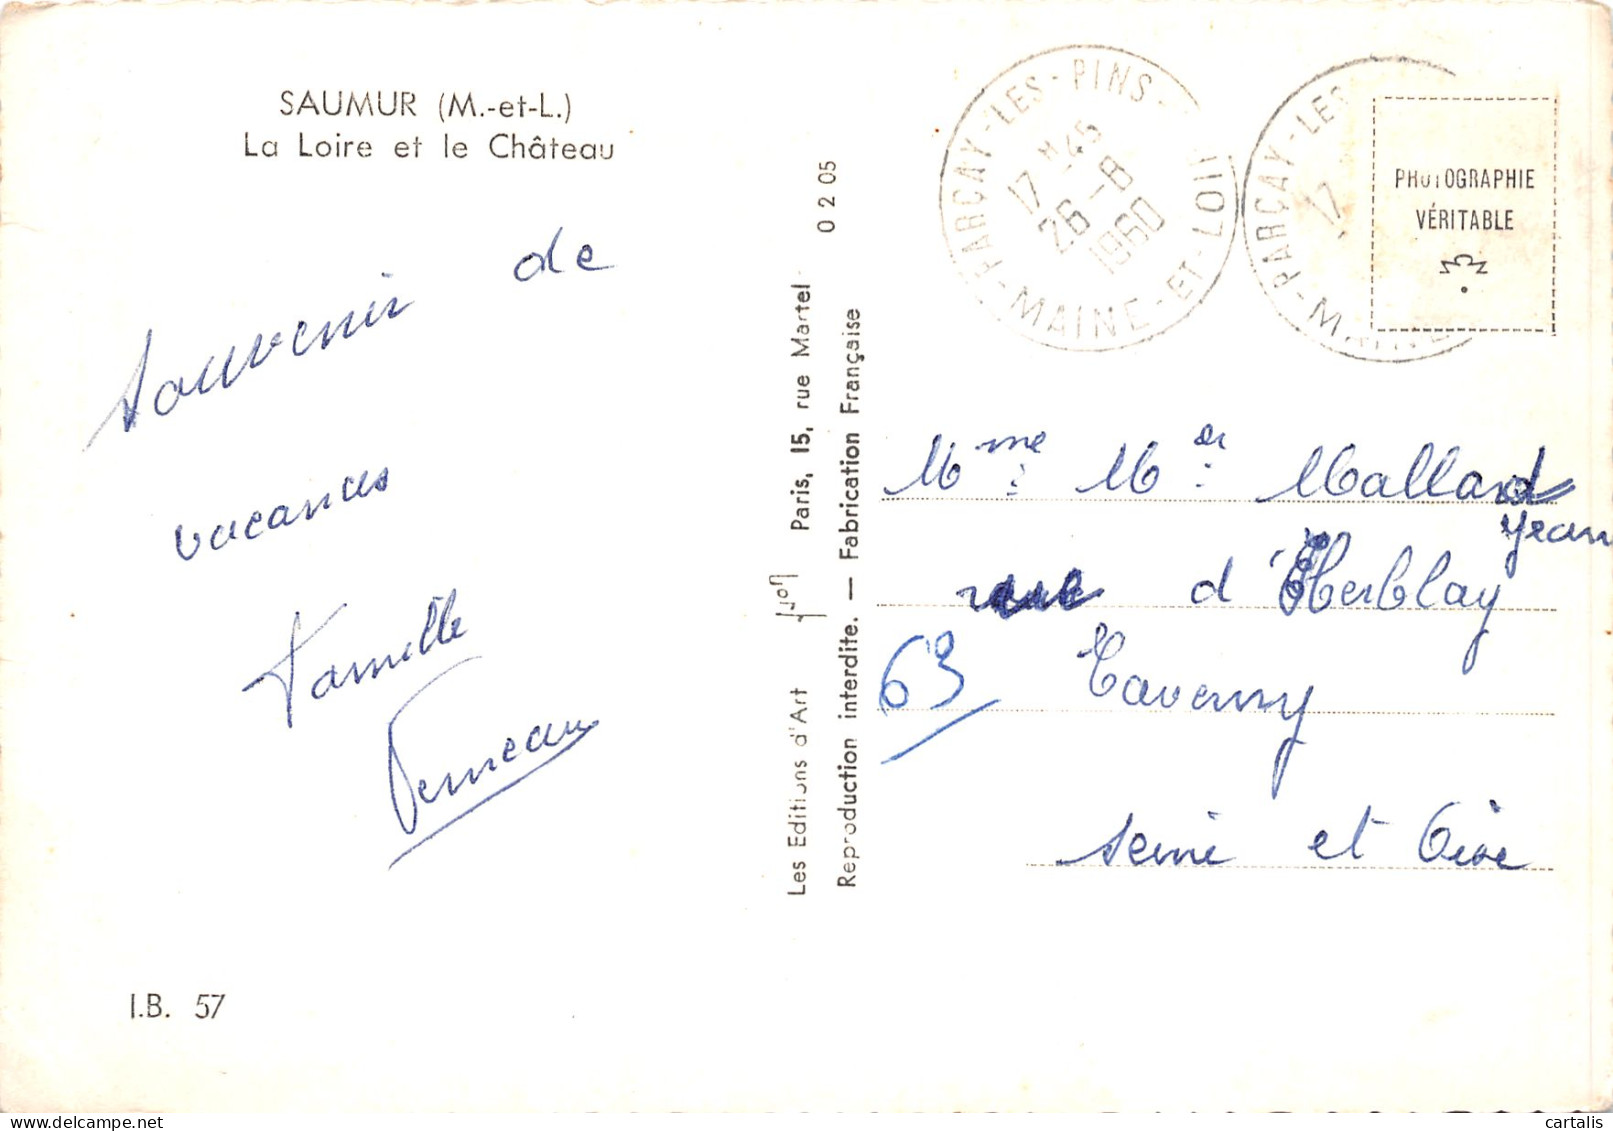 SAUMUR (M.-et-L.)
La Loire et le Château
Souvenir de
vacances
famille
I.B. 57
Les Editions d'Art Yvon Paris, 15, rue Martel 0 2 05
Reproduction interdite. — Fabrication Française
PARÇAY-LES-PINS
17 H 45
26-8
1960
MAINE-ET-LOIR
PARÇAY-LES
17
PHOTOGRAPHIE
VÉRITABLE
Mme Mer Mallard
Jean
rue d'Herblay
63 Taverny
Seine et Oise
cartalis